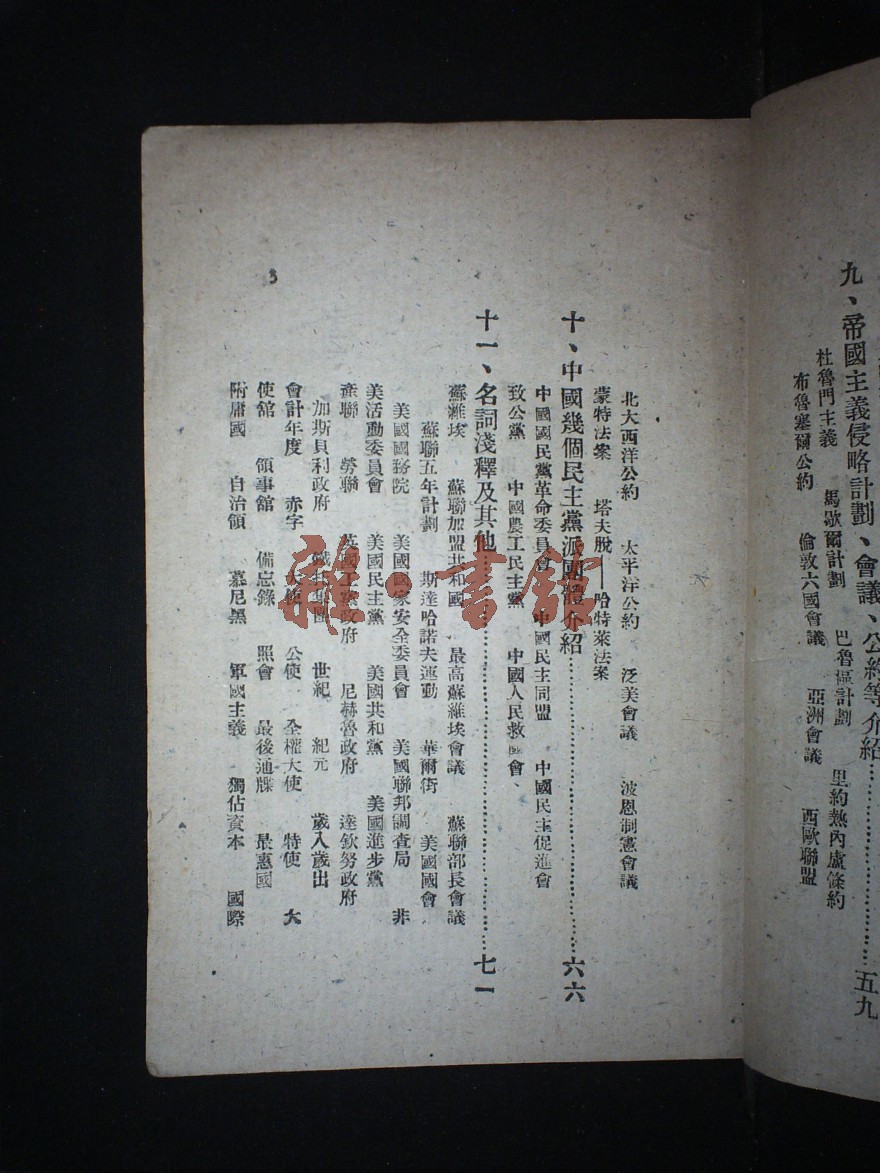 九、帝國主義侵略計劃、會議、公約等介紹……五九
杜魯門主義 馬歇爾計劃 巴魯區計劃 里約熱內盧條約
布魯塞爾公約 倫敦六國會議 亞洲會議 西歐聯盟
北大西洋公約 太平洋公約 泛美會議 波恩制憲會議
蒙特法案 塔夫脫——哈特萊法案
十、中國幾個民主黨派團體介紹……六六
中國國民黨革命委員會 中國民主同盟 中國民主促進會
致公黨 中國農工民主黨 中國人民救國會、
十一、名詞淺釋及其他……七一
蘇濰埃 蘇聯加盟共和國 最高蘇維埃會議 蘇聯部長會議
蘇聯五年計劃 斯達哈諾夫運動 華爾街 美國國會
美國國務院 美國國家安全委員會 美國聯邦調查局 非
美活動委員會 美國民主黨 美國共和黨 美國進步黨
產聯 勞聯 英國工黨政府 尼赫魯政府 達欽努政府
加斯貝利政府 鐵托集團 世紀 紀元 歲入歲出
會計年度 赤字 大使 公使 全權大使 特使 大
使舘 領事舘 備忘錄 照會 最後通牒 最惠國
附庸國 自治領 慕尼黑 軍國主義 獨佔資本 國際
3
雜·書館